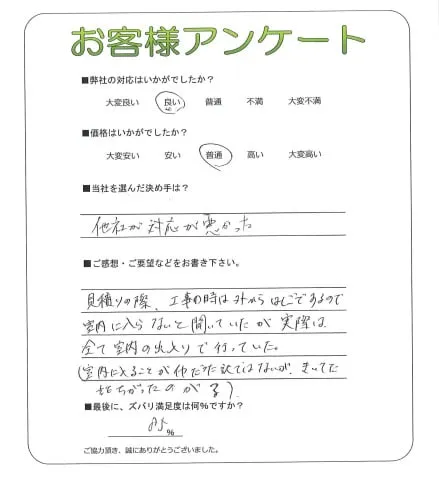 お客様アンケート
■弊社の対応はいかがでしたか？
大変良い　良い　普通　不満　大変不満
■価格はいかがでしたか？
大変安い　安い　普通　高い　大変高い
■当社を選んだ決め手は？
他社が対応が悪かった
■ご感想・ご要望などをお書き下さい。
見積りの際、工事の時は外からはしごでするので
室内に入らないと聞いていたが実際は
全て室内の出入りで行っていた。
(室内に入ることが
■最後に、ズバリ満足度は何%ですか？
%
ご協力頂き、誠にありがとうございました。